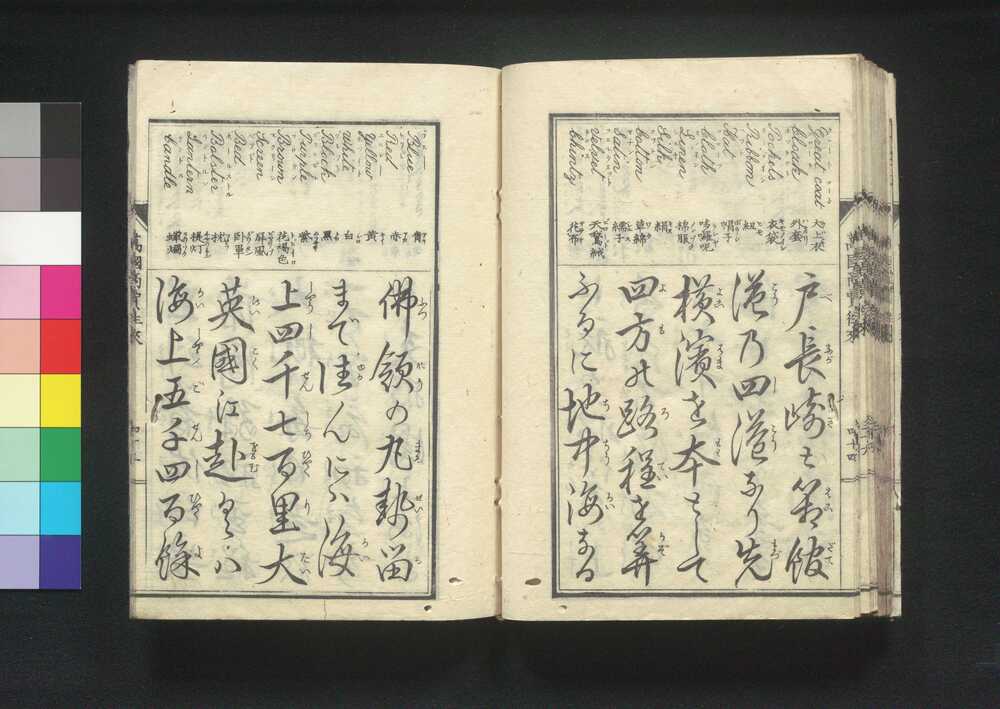 Great coat
Cloak
Pockets
Ribbon
Hat
Cloth
Linen
Silk
Cotton
Satin
Velvet
Chintz
外套
衣袋
紐
帽子
絹
繻子
花布
戸長崎と箱館
港乃四港なり先
横濱を本として
四方の路程を算
ふるに地中海なる
Blue
Red
Yellow
White
Black
Purple
Brown
Screen
Bed
Bolster
Lantern
Candle
青
赤
黄
白
黒
紫
屏風
枕
提灯
蝋燭
佛領の丸勢留
まで往んには海
上四千七百里大
英國江赴くには
海上五千四百餘